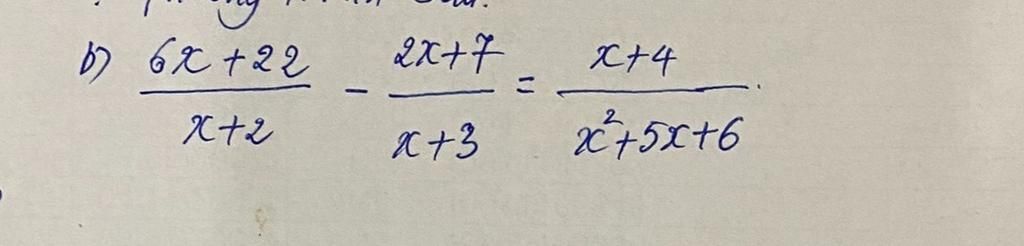 b) (6x+22)/(x+2) - (2x+7)/(x+3) = (x+4)/(x²+5x+6).